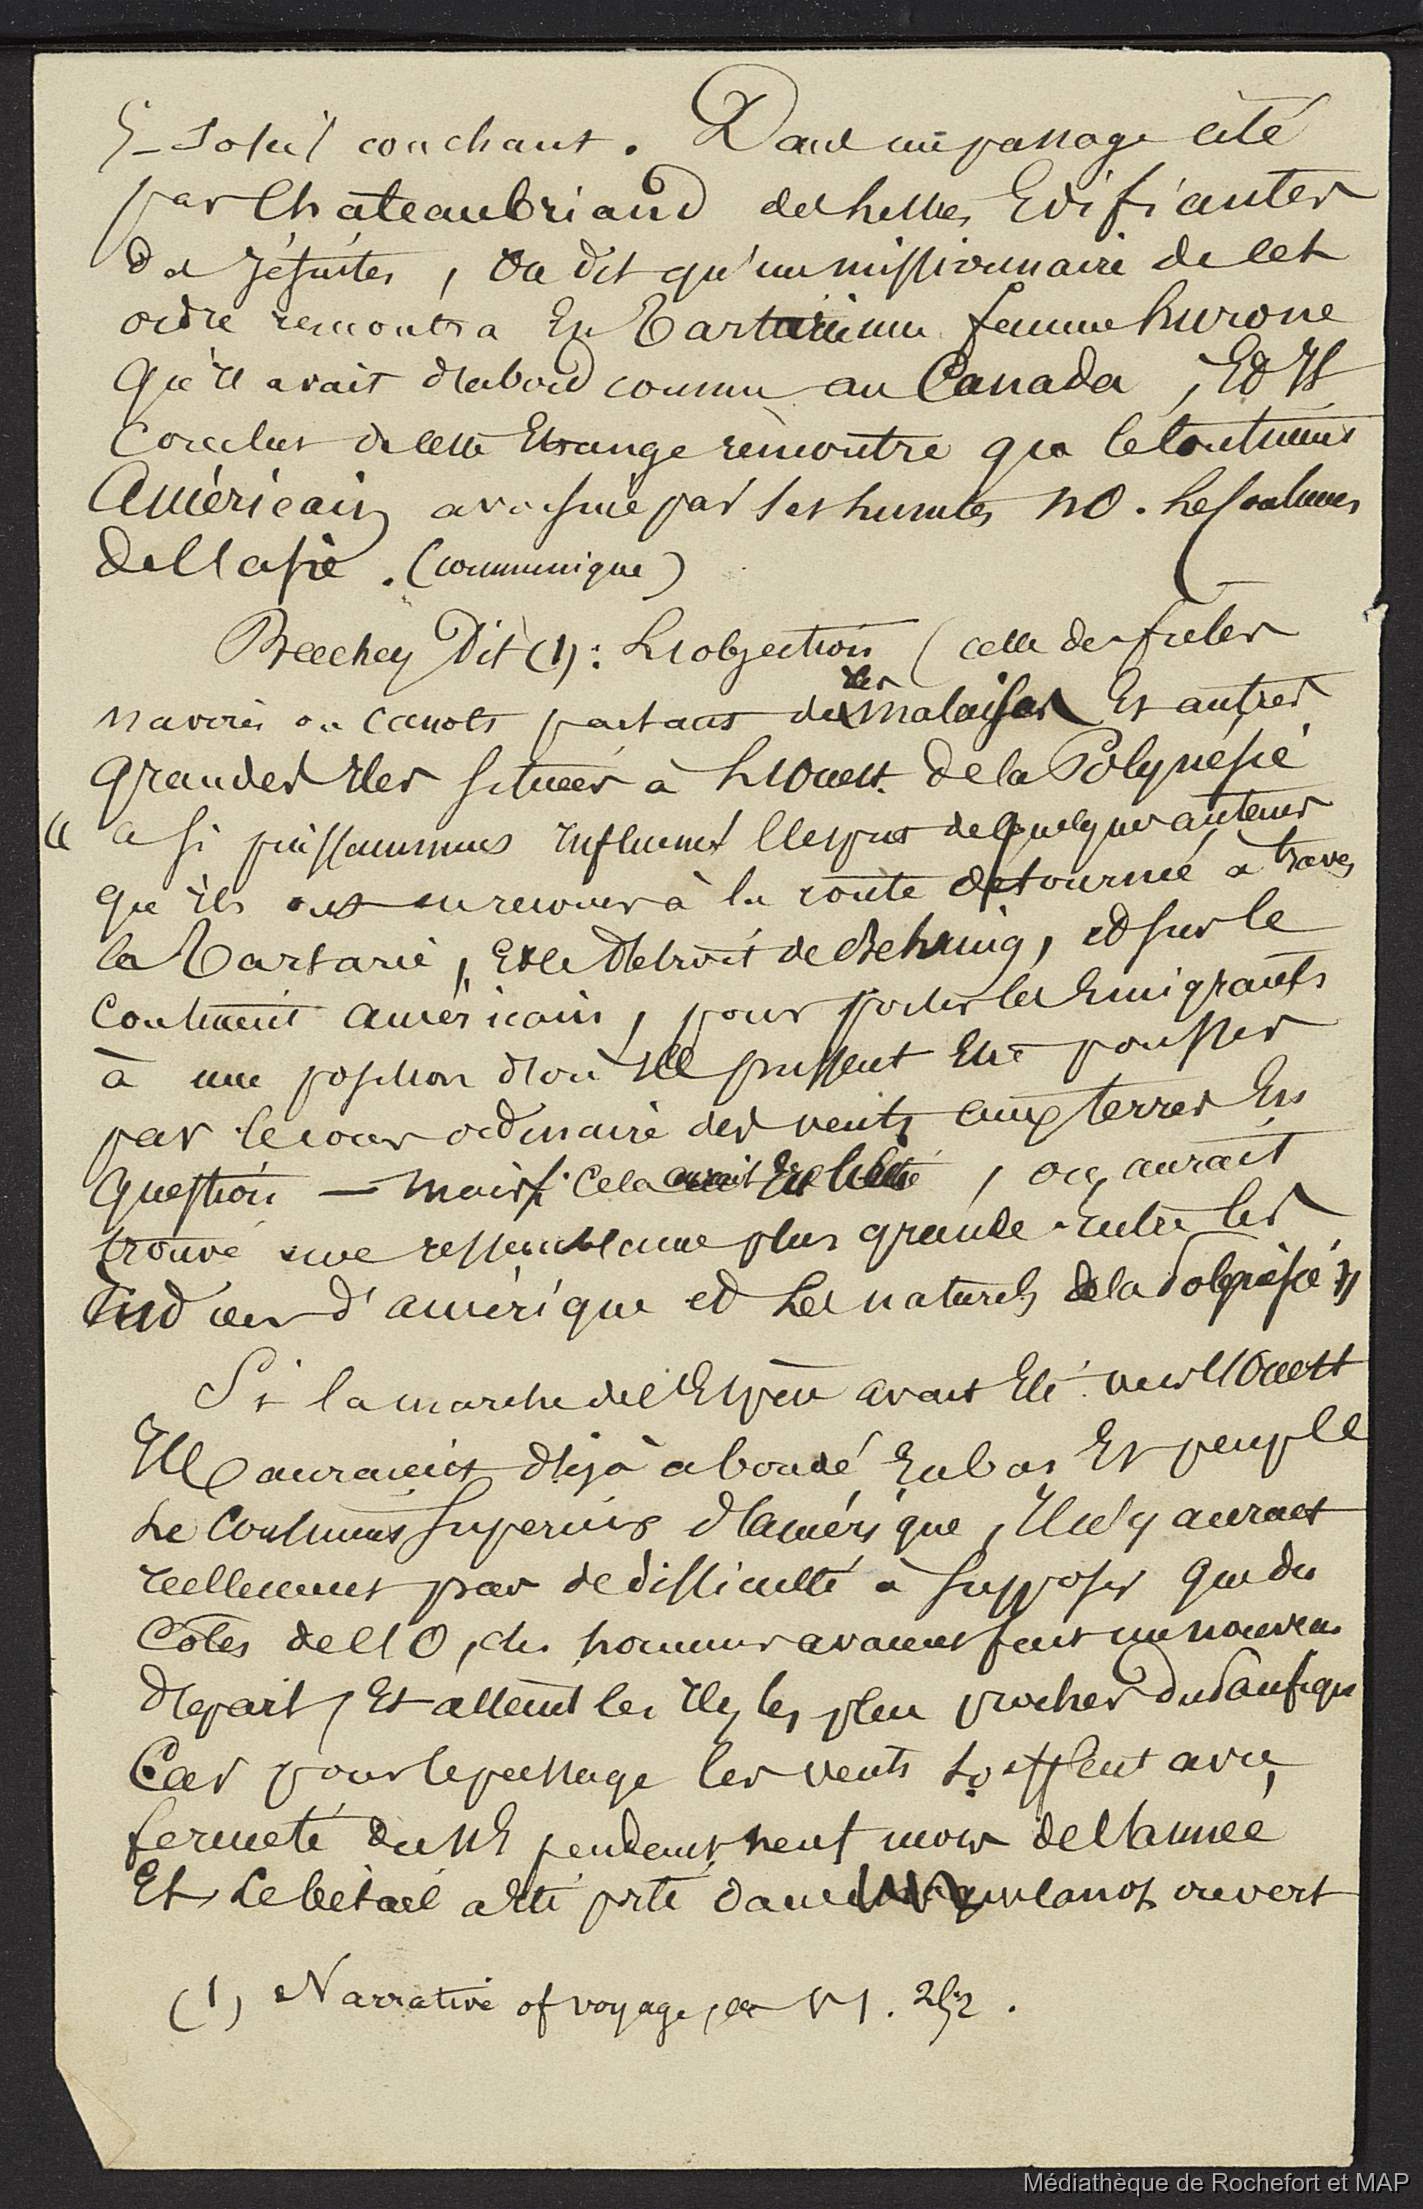 Soleil couchant. Dans un passage cité
par Châteaubriand des lettres Edifiantes
des Jésuites, on dit qu'un missionnaire de cet
ordre rencontra En Tartarie une femme hurone
qu'il avait d'abord connu au Canada, Et Il
conclut de cette Etrange rencontre que le continent
Américain avoisine par ses limites NO. le continent
de l'asie. (communiqué)
Beechey Dit (1) : L'objection (celle de frêles
navires ou canots partant des malaises Et autres
grandes Iles situées à L'Ouest de la Polynésie
" a si puissamment influencé l'esprit de quelques auteurs
qu'ils ont eu recours à la route détournée à travers
la Tartarie, Et le détroit de Behring, et sur le
continent américain, pour porter les Emigrants
à une position d'où Ils pussent Etre poussés
par le cours ordinaire des vents aux terres En
question — mais si cela avait Eté, on aurait
trouvé une ressemblance plus grande Entre les
Indiens d'amérique et Les naturels de la Polynésie "
Si la marche de l'Espèce avait Eté vers l'Ouest
Ils auraient déjà abordé En bas Et peuplé
Le Continent Superieur d'amérique, Il n'y aurait
reellement pas de difficulté à supposer que des
Côtes de l'O, des hommes avaient fait un nouveau
départ, Et atteint les Iles les plus proches du Pacifique
Car pour le passage les vents soufflent avec
fermeté du NE pendant neuf mois de l'année
Et Le bétail a Eté porté dans un canot ouvert
(1) Narrative of voyage, &a V 1. 252.
Médiathèque de Rochefort et MAP